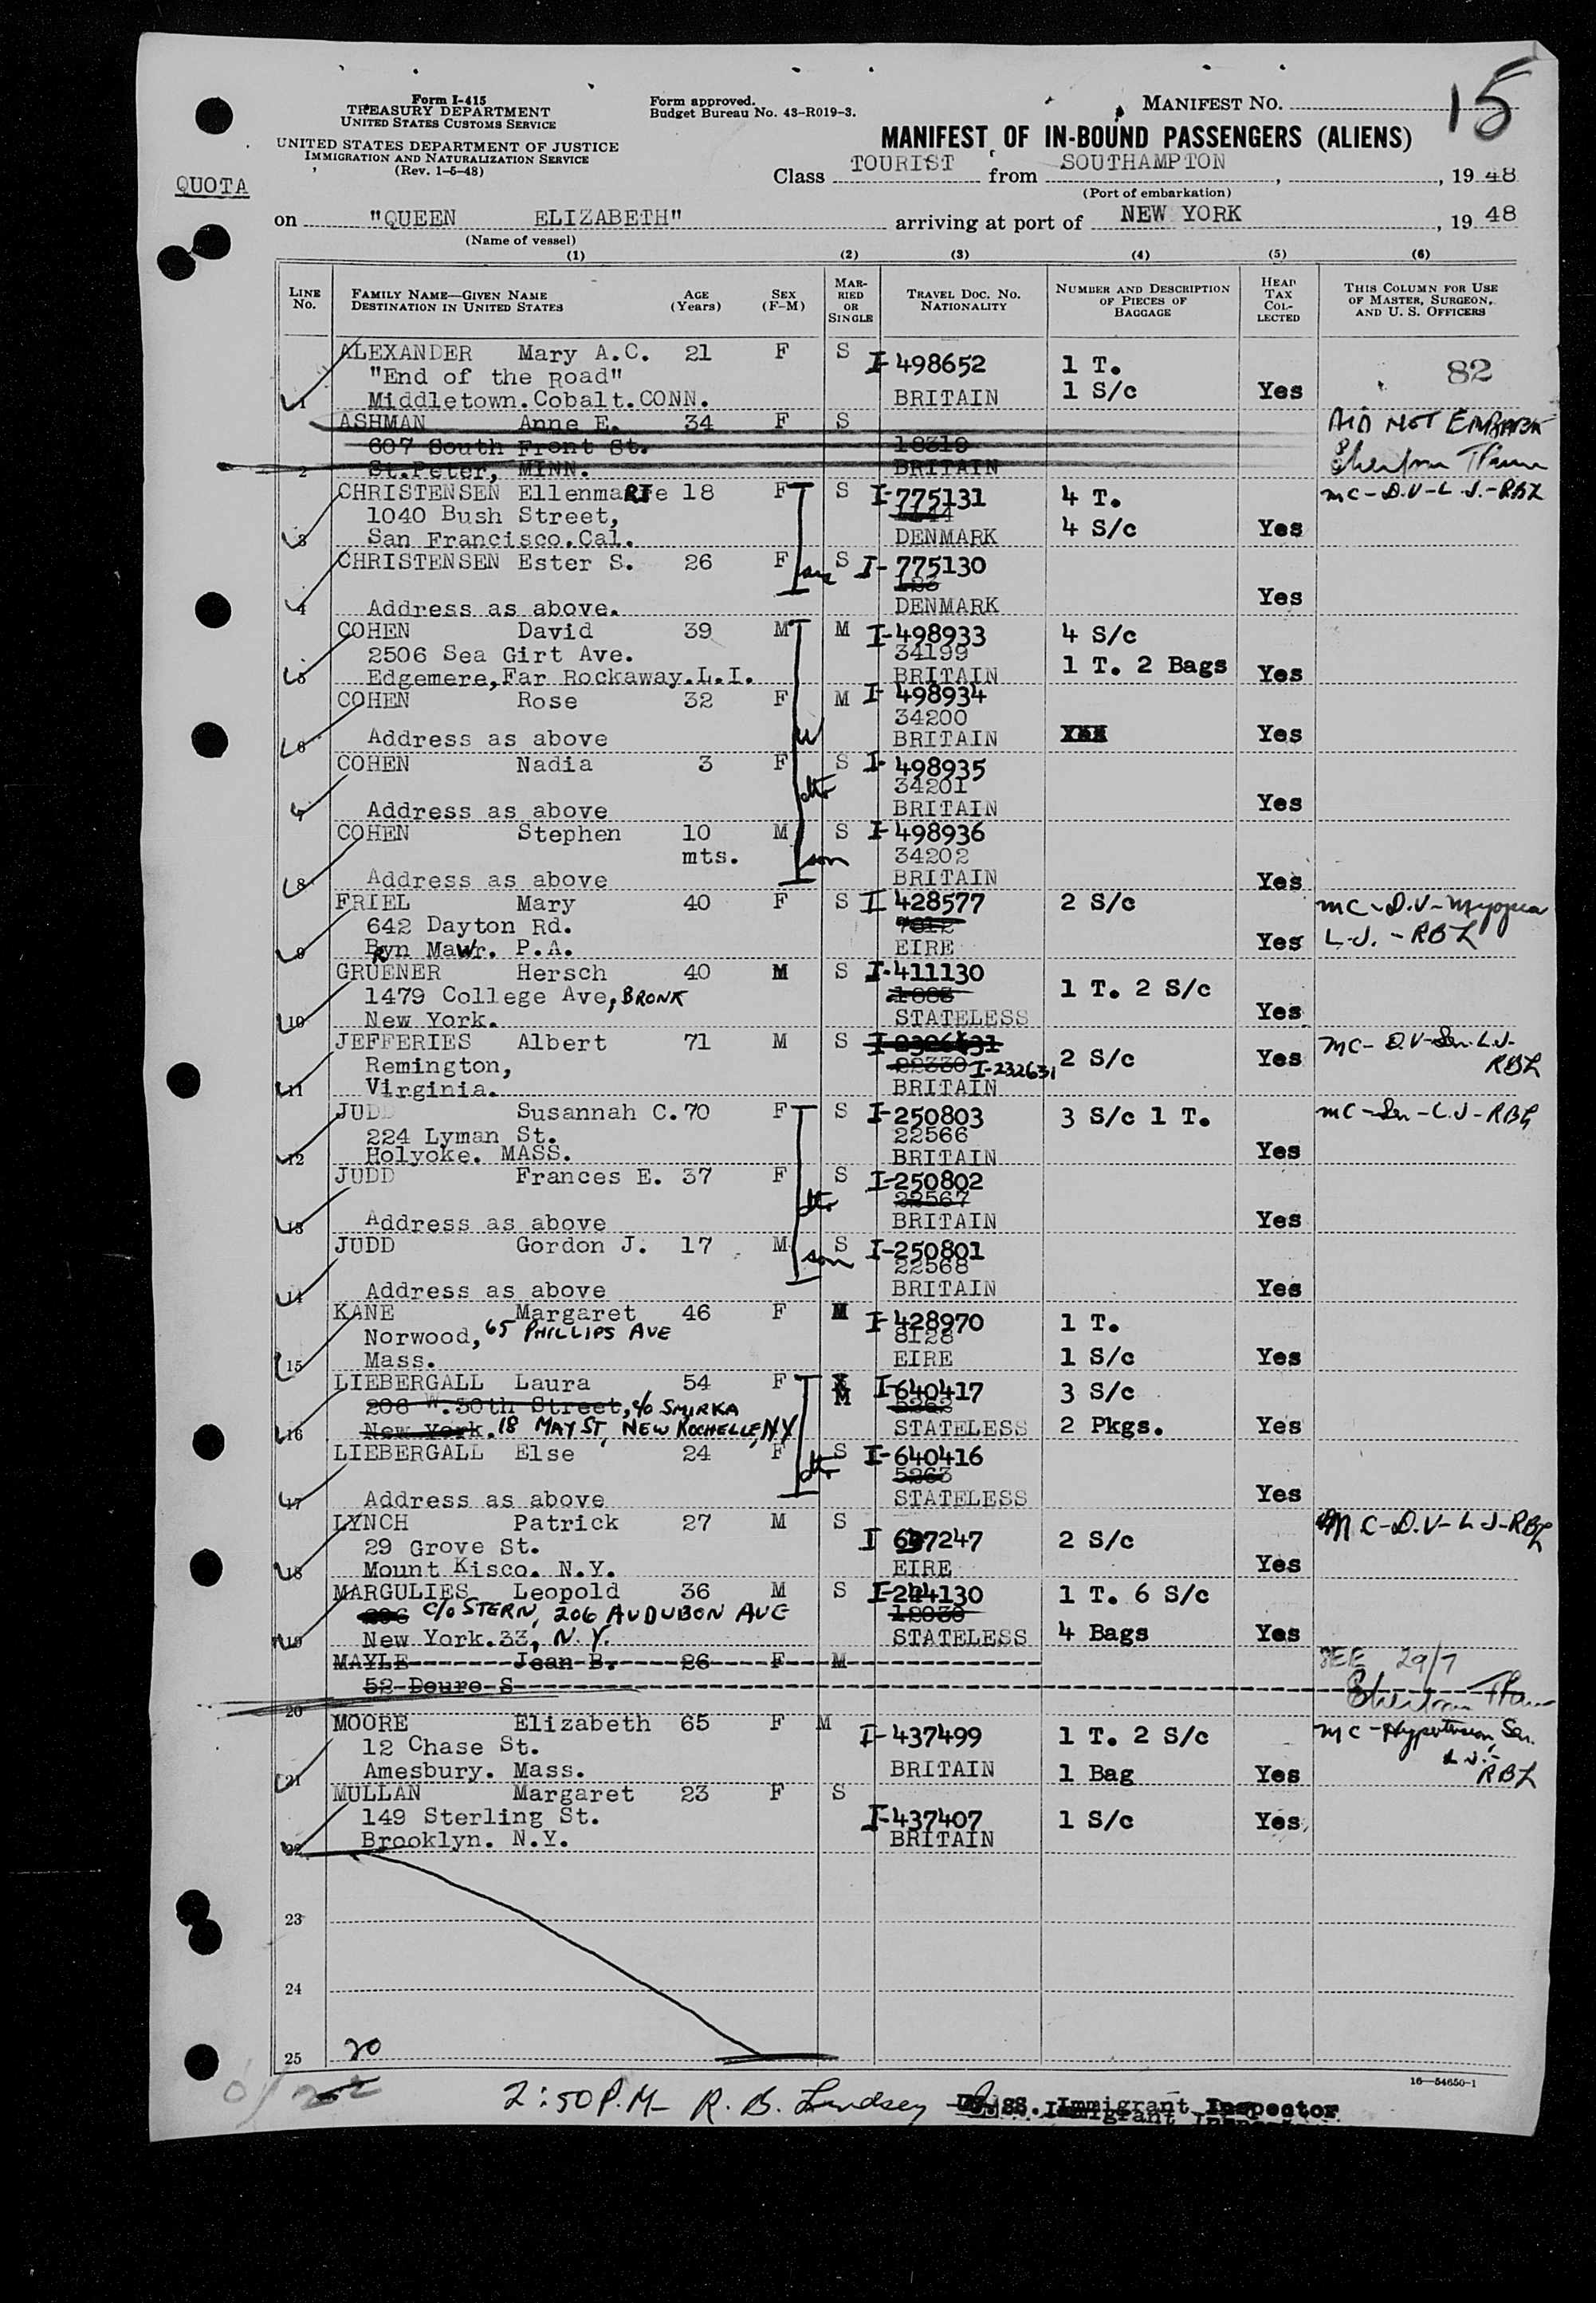 Form I-415
TREASURY DEPARTMENT
UNITED STATES CUSTOMS SERVICE
UNITED STATES DEPARTMENT OF JUSTICE
IMMIGRATION AND NATURALIZATION SERVICE
(Rev. 1-5-48)
QUOTA
Form approved.
Budget Bureau No. 43-R019-3.
MANIFEST NO. 15
MANIFEST OF IN-BOUND PASSENGERS (ALIENS)
Class TOURIST from SOUTHAMPTON, , 1948
(Port of embarkation)
on "QUEEN ELIZABETH" arriving at port of NEW YORK, 1948
(Name of vessel)
(1) (2) (3) (4) (5) (6)
LINE No. FAMILY NAME—GIVEN NAME DESTINATION IN UNITED STATES AGE (Years) SEX (F-M) MARRIED OR SINGLE TRAVEL DOC. NO. NATIONALITY NUMBER AND DESCRIPTION OF PIECES OF BAGGAGE HEAD TAX COLLECTED THIS COLUMN FOR USE OF MASTER, SURGEON, AND U. S. OFFICERS
ALEXANDER Mary A.C. 21 F S I-498652 1 T. 82
"End of the Road"
1 Middletown.Cobalt.CONN. BRITAIN 1 S/c Yes
ASHMAN Anne E. 34 F S DID NOT EMBARK
607 South Front St. 18319
2 St.Peter, MINN. BRITAIN
CHRISTENSEN EllenmaRIe 18 F S I-775131 4 T. MC-D.V-L.J.-RBL
1040 Bush Street,
3 San Francisco.Cal. DENMARK 4 S/c Yes
CHRISTENSEN Ester S. 26 F S I-775130
4 Address as above. DENMARK Yes
COHEN David 39 M M I-498933 4 S/c
2506 Sea Girt Ave. 34199
5 Edgemere,Far Rockaway.L.I. BRITAIN 1 T. 2 Bags Yes
COHEN Rose 32 F M I-498934
34200
6 Address as above W BRITAIN Yes
COHEN Nadia 3 F S I-498935
dtr 34201
Address as above BRITAIN Yes
COHEN Stephen 10 M S I-498936
mts. son 34202
8 Address as above BRITAIN Yes
FRIEL Mary 40 F S I 428577 2 S/c MC-D.V-Myopia
642 Dayton Rd. 7812
9 BRyn MaWr. P.A. EIRE Yes L.J.-RBL
GRUENER Hersch 40 M S I-411130
1479 College Ave, BRONX 1 T. 2 S/c
10 New York. STATELESS Yes
JEFFERIES Albert 71 M S MC-D.V-Sen.L.J-
Remington, 22330 I-232631 2 S/c Yes RBL
11 Virginia. BRITAIN
JUDD Susannah C. 70 F S I-250803 3 S/c 1 T. MC-Sen-L.J-RBL
224 Lyman St. 22566
12 Holyoke. MASS. BRITAIN Yes
JUDD Frances E. 37 F S I-250802
dtr 22567
13 Address as above BRITAIN Yes
JUDD Gordon J. 17 M son S I-250801
22568
14 Address as above BRITAIN Yes
KANE Margaret 46 F M I-428970 1 T.
Norwood, 65 PHILLIPS AVE 8128
15 Mass. EIRE 1 S/c Yes
LIEBERGALL Laura 54 F M I-640417 3 S/c
206 W.30th Street, c/o SMIRKA 5262
16 New York. 18 MAY ST, NEW ROCHELLE, N.Y STATELESS 2 Pkgs. Yes
LIEBERGALL Else 24 F S I-640416
dtr 5263
17 Address as above STATELESS Yes
LYNCH Patrick 27 M S MC-D.V-L.J-RBL
29 Grove St. I 647247 2 S/c
18 Mount Kisco. N.Y. EIRE Yes
MARGULIES Leopold 36 M S I-244130 1 T. 6 S/c
c/o STERN, 206 AUDUBON AVE
19 New York.33, N.Y. STATELESS 4 Bags Yes
MAYLE Jean B. 26 F M SEE 29/7
52 Douro S
20
MOORE Elizabeth 65 F M I-437499 1 T. 2 S/c MC-Hypertension, Sen.
12 Chase St. L.J.-
21 Amesbury. Mass. BRITAIN 1 Bag Yes RBL
MULLAN Margaret 23 F S
149 Sterling St. I-437407 1 S/c Yes
22 Brooklyn. N.Y. BRITAIN
23
24
25 20
16—54650-1
2:50 P.M- R. B. Lindsey U.S. Immigrant Inspector